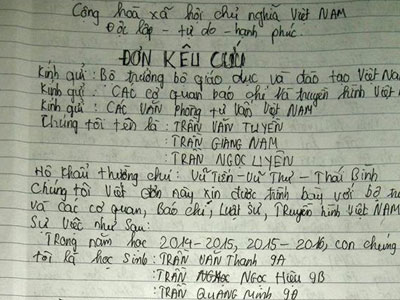 Cộng hoà xã hội chủ nghĩa Việt NAM
Độc lập - tự do - hạnh phúc.
ĐƠN KÊU CỨU
Kính gửi: Bộ trưởng bộ giáo dục và đào tạo Việt Na
Kính gửi: CÁC cơ quan báo chí và truyền hình Việt N
Kính gửi: CÁC VĂN Phòng tư vấn Việt NAM
Chúng tôi tên là: TRẦN VĂN TUYÊN
: TRẦN GIANG NAM
: TRẦN NGỌC LUYÊN
Hộ khẩu thường chú: Vũ Tiến - Vũ Thư - Thái Bình
Chúng tôi Viết đơn này xin được trình bày với bộ trư
và các cơ quan, Báo chí, Luật sư, TRuyền hình Việt NAM
Sự Việc như sau:
Trong năm học 2014-2015, 2015-2016, con chúng
tôi là học sinh: TRẦN VĂN Thanh 9A
: TRẦN Ngọc Hiếu 9B
: TRẦN QUANG Minh 9B